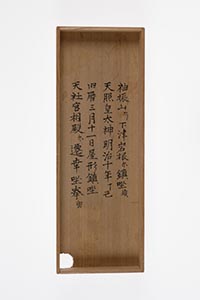 柏振山ノ下津岩根ニ鎮坐
天照皇大神明治十年丁丑
旧暦三月十一日屋形鎮坐
天社宮相殿ニ遷幸坐